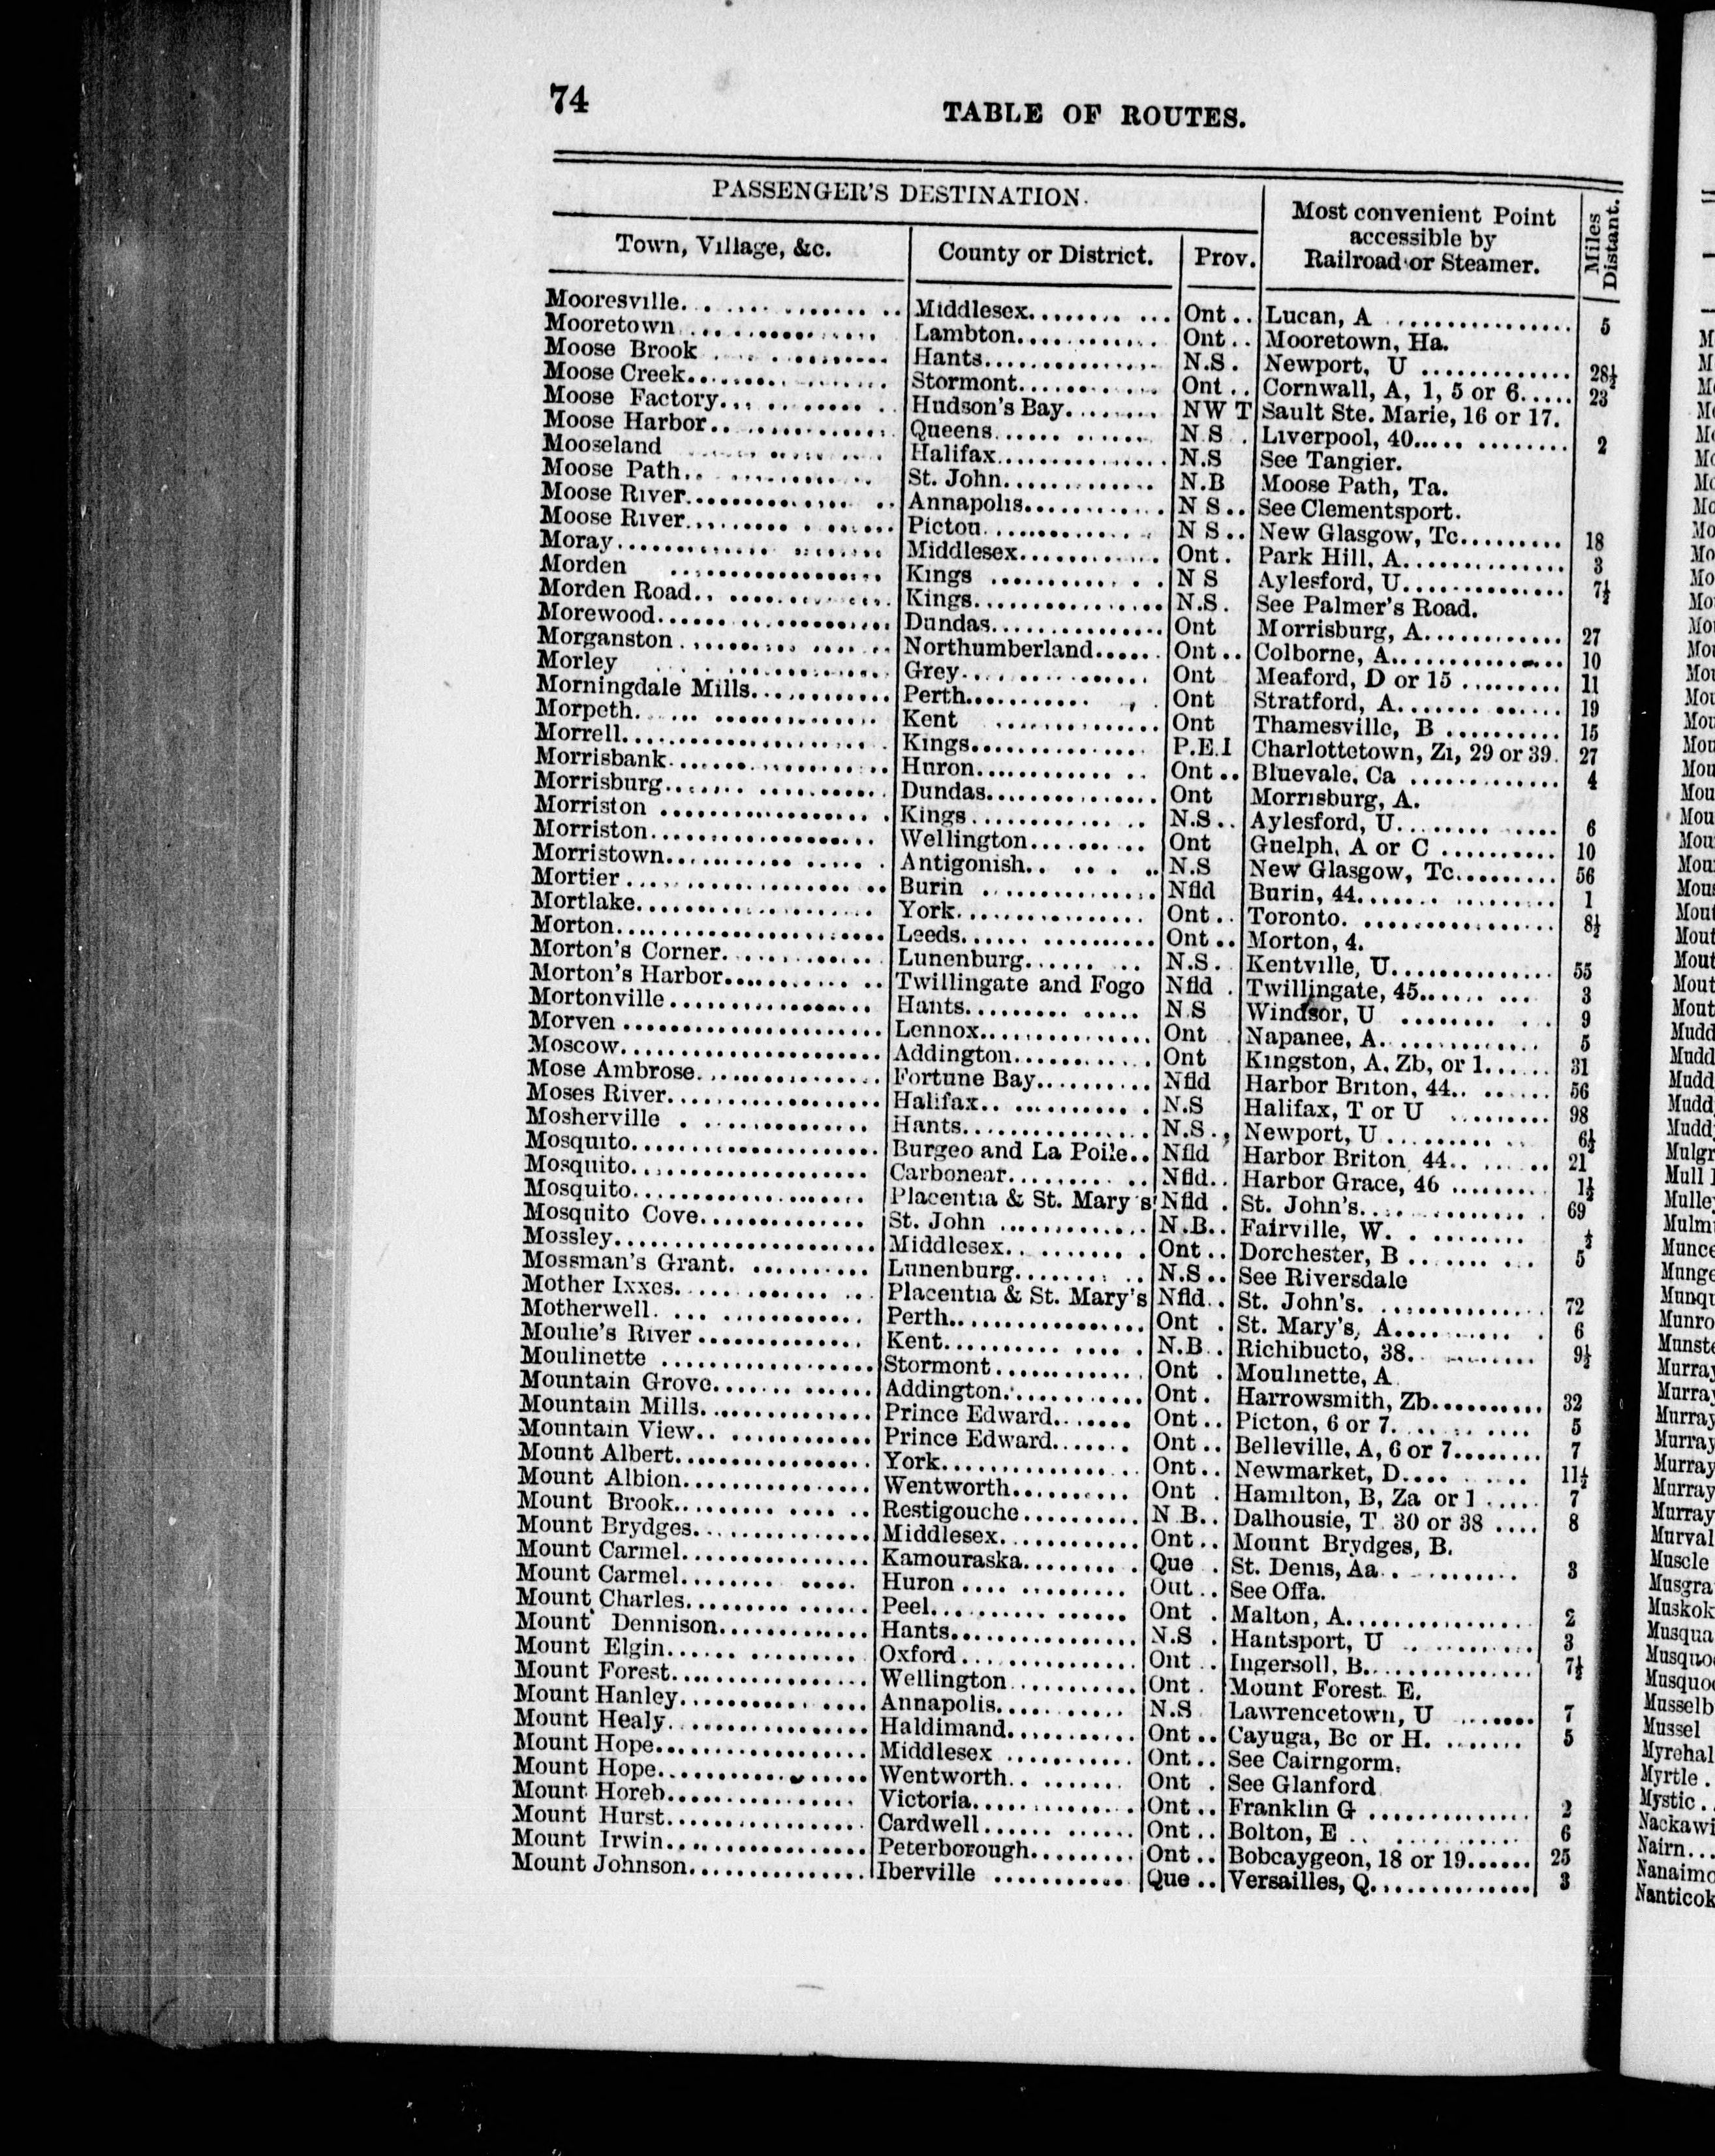 74
TABLE OF ROUTES.
PASSENGER'S DESTINATION.
Most convenient Point accessible by Railroad or Steamer.
Miles Distant.
Town, Village, &c. County or District. Prov.
Mooresville Middlesex Ont Lucan, A 5
Mooretown Lambton Ont Mooretown, Ha.
Moose Brook Hants N.S. Newport, U 28½
Moose Creek Stormont Ont Cornwall, A, 1, 5 or 6 23
Moose Factory Hudson's Bay NW T Sault Ste. Marie, 16 or 17.
Moose Harbor Queens N S Liverpool, 40 2
Mooseland Halifax N.S See Tangier.
Moose Path St. John N.B Moose Path, Ta.
Moose River Annapolis N S See Clementsport.
Moose River Pictou N S New Glasgow, Tc 18
Moray Middlesex Ont. Park Hill, A 3
Morden Kings N S Aylesford, U 7½
Morden Road Kings N.S. See Palmer's Road.
Morewood Dundas Ont Morrisburg, A 27
Morganston Northumberland Ont Colborne, A 10
Morley Grey Ont Meaford, D or 15 11
Morningdale Mills Perth Ont Stratford, A 19
Morpeth Kent Ont Thamesville, B 15
Morrell Kings P.E.I Charlottetown, Zi, 29 or 39. 27
Morrisbank Huron Ont Bluevale, Ca 4
Morrisburg Dundas Ont Morrisburg, A.
Morriston Kings N.S Aylesford, U 6
Morriston Wellington Ont Guelph, A or C 10
Morristown Antigonish N.S New Glasgow, Tc 56
Mortier Burin Nfld Burin, 44 1
Mortlake York Ont Toronto 8½
Morton Leeds Ont Morton, 4.
Morton's Corner Lunenburg N.S. Kentville, U 55
Morton's Harbor Twillingate and Fogo Nfld Twillingate, 45 3
Mortonville Hants N.S Windsor, U 9
Morven Lennox Ont Napanee, A 5
Moscow Addington Ont Kingston, A, Zb, or 1 31
Mose Ambrose Fortune Bay Nfld Harbor Briton, 44 56
Moses River Halifax N.S Halifax, T or U 98
Mosherville Hants N.S Newport, U 6½
Mosquito Burgeo and La Poile Nfld Harbor Briton, 44 21
Mosquito Carbonear Nfld Harbor Grace, 46 1½
Mosquito Placentia & St. Mary's Nfld St. John's 69
Mosquito Cove St. John N.B Fairville, W ½
Mossley Middlesex Ont Dorchester, B 5
Mossman's Grant Lunenburg N.S See Riversdale
Mother Ixxes Placentia & St. Mary's Nfld St. John's 72
Motherwell Perth Ont St. Mary's, A 6
Moulie's River Kent N.B Richibucto, 38 9½
Moulinette Stormont Ont Moulinette, A
Mountain Grove Addington Ont. Harrowsmith, Zb 32
Mountain Mills Prince Edward Ont Picton, 6 or 7 5
Mountain View Prince Edward Ont Belleville, A, 6 or 7 7
Mount Albert York Ont Newmarket, D 11½
Mount Albion Wentworth Ont Hamilton, B, Za or 1 7
Mount Brook Restigouche N B Dalhousie, T 30 or 38 8
Mount Brydges Middlesex Ont Mount Brydges, B.
Mount Carmel Kamouraska Que St. Denis, Aa 3
Mount Carmel Huron Out See Offa.
Mount Charles Peel Ont Malton, A 2
Mount Dennison Hants N.S Hantsport, U 3
Mount Elgin Oxford Ont Ingersoll, B 7½
Mount Forest Wellington Ont Mount Forest E.
Mount Hanley Annapolis N.S Lawrencetown, U 7
Mount Healy Haldimand Ont Cayuga, Bc or H. 5
Mount Hope Middlesex Ont See Cairngorm.
Mount Hope Wentworth Ont See Glanford
Mount Horeb Victoria Ont Franklin G 2
Mount Hurst Cardwell Ont Bolton, E 6
Mount Irwin Peterborough Ont Bobcaygeon, 18 or 19 25
Mount Johnson Iberville Que Versailles, Q 3